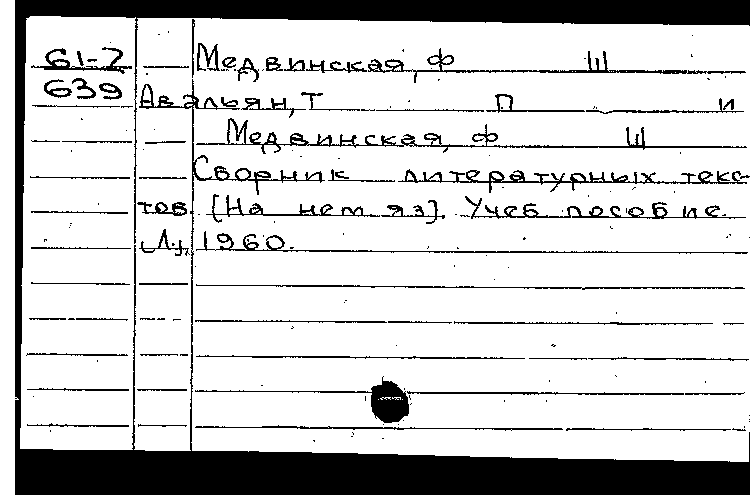 61-2 Медвинская, Ф Ш
639 Авальян, Т П и
Медвинская, Ф Ш
Сборник литературных текс-
тов. [На нем яз]. Учеб пособие.
Л., 1960.